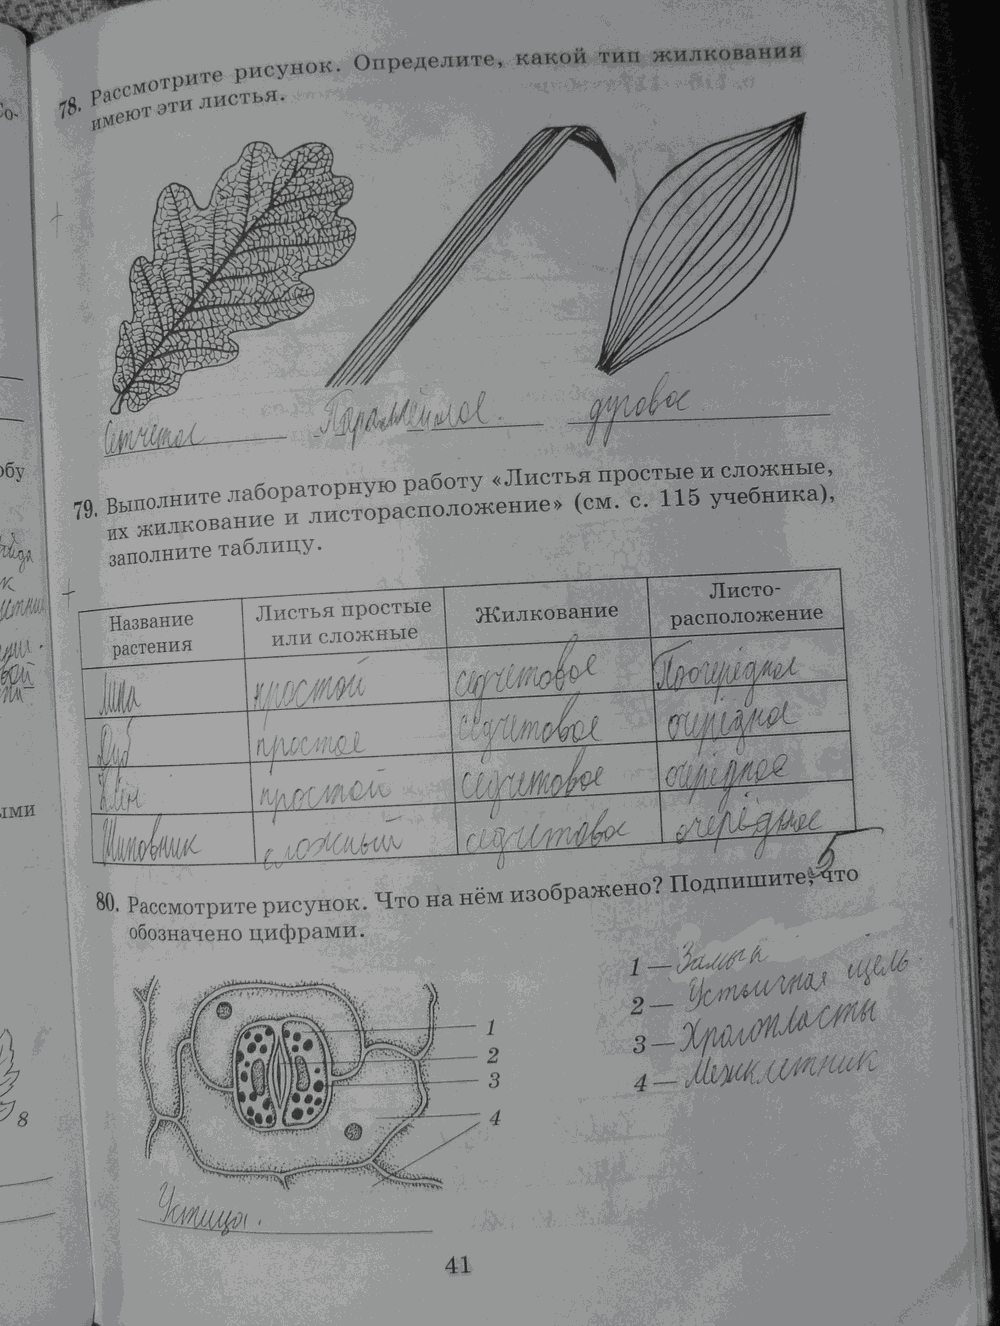 78. Рассмотрите рисунок. Определите, какой тип жилкования
имеют эти листья.
Сетчетое Параллейлное. дуговое
79. Выполните лабораторную работу «Листья простые и сложные,
их жилкование и листорасположение» (см. с. 115 учебника),
заполните таблицу.
Название растения Листья простые или сложные Жилкование Листо-расположение
Липа простой седчетовое Поочерёдное
Дуб простое седчетовое очерёдное
Клён простой седчетовое очерёдное
Шиповник сложный седчетовое очерёдное
5
80. Рассмотрите рисунок. Что на нём изображено? Подпишите, что
обозначено цифрами.
1 — Замык
2 — Устьичная щель.
3 — Хролопласты
4 — Межклетник
1
2
3
4
Устица.
41
Со-
обу
ыми
8